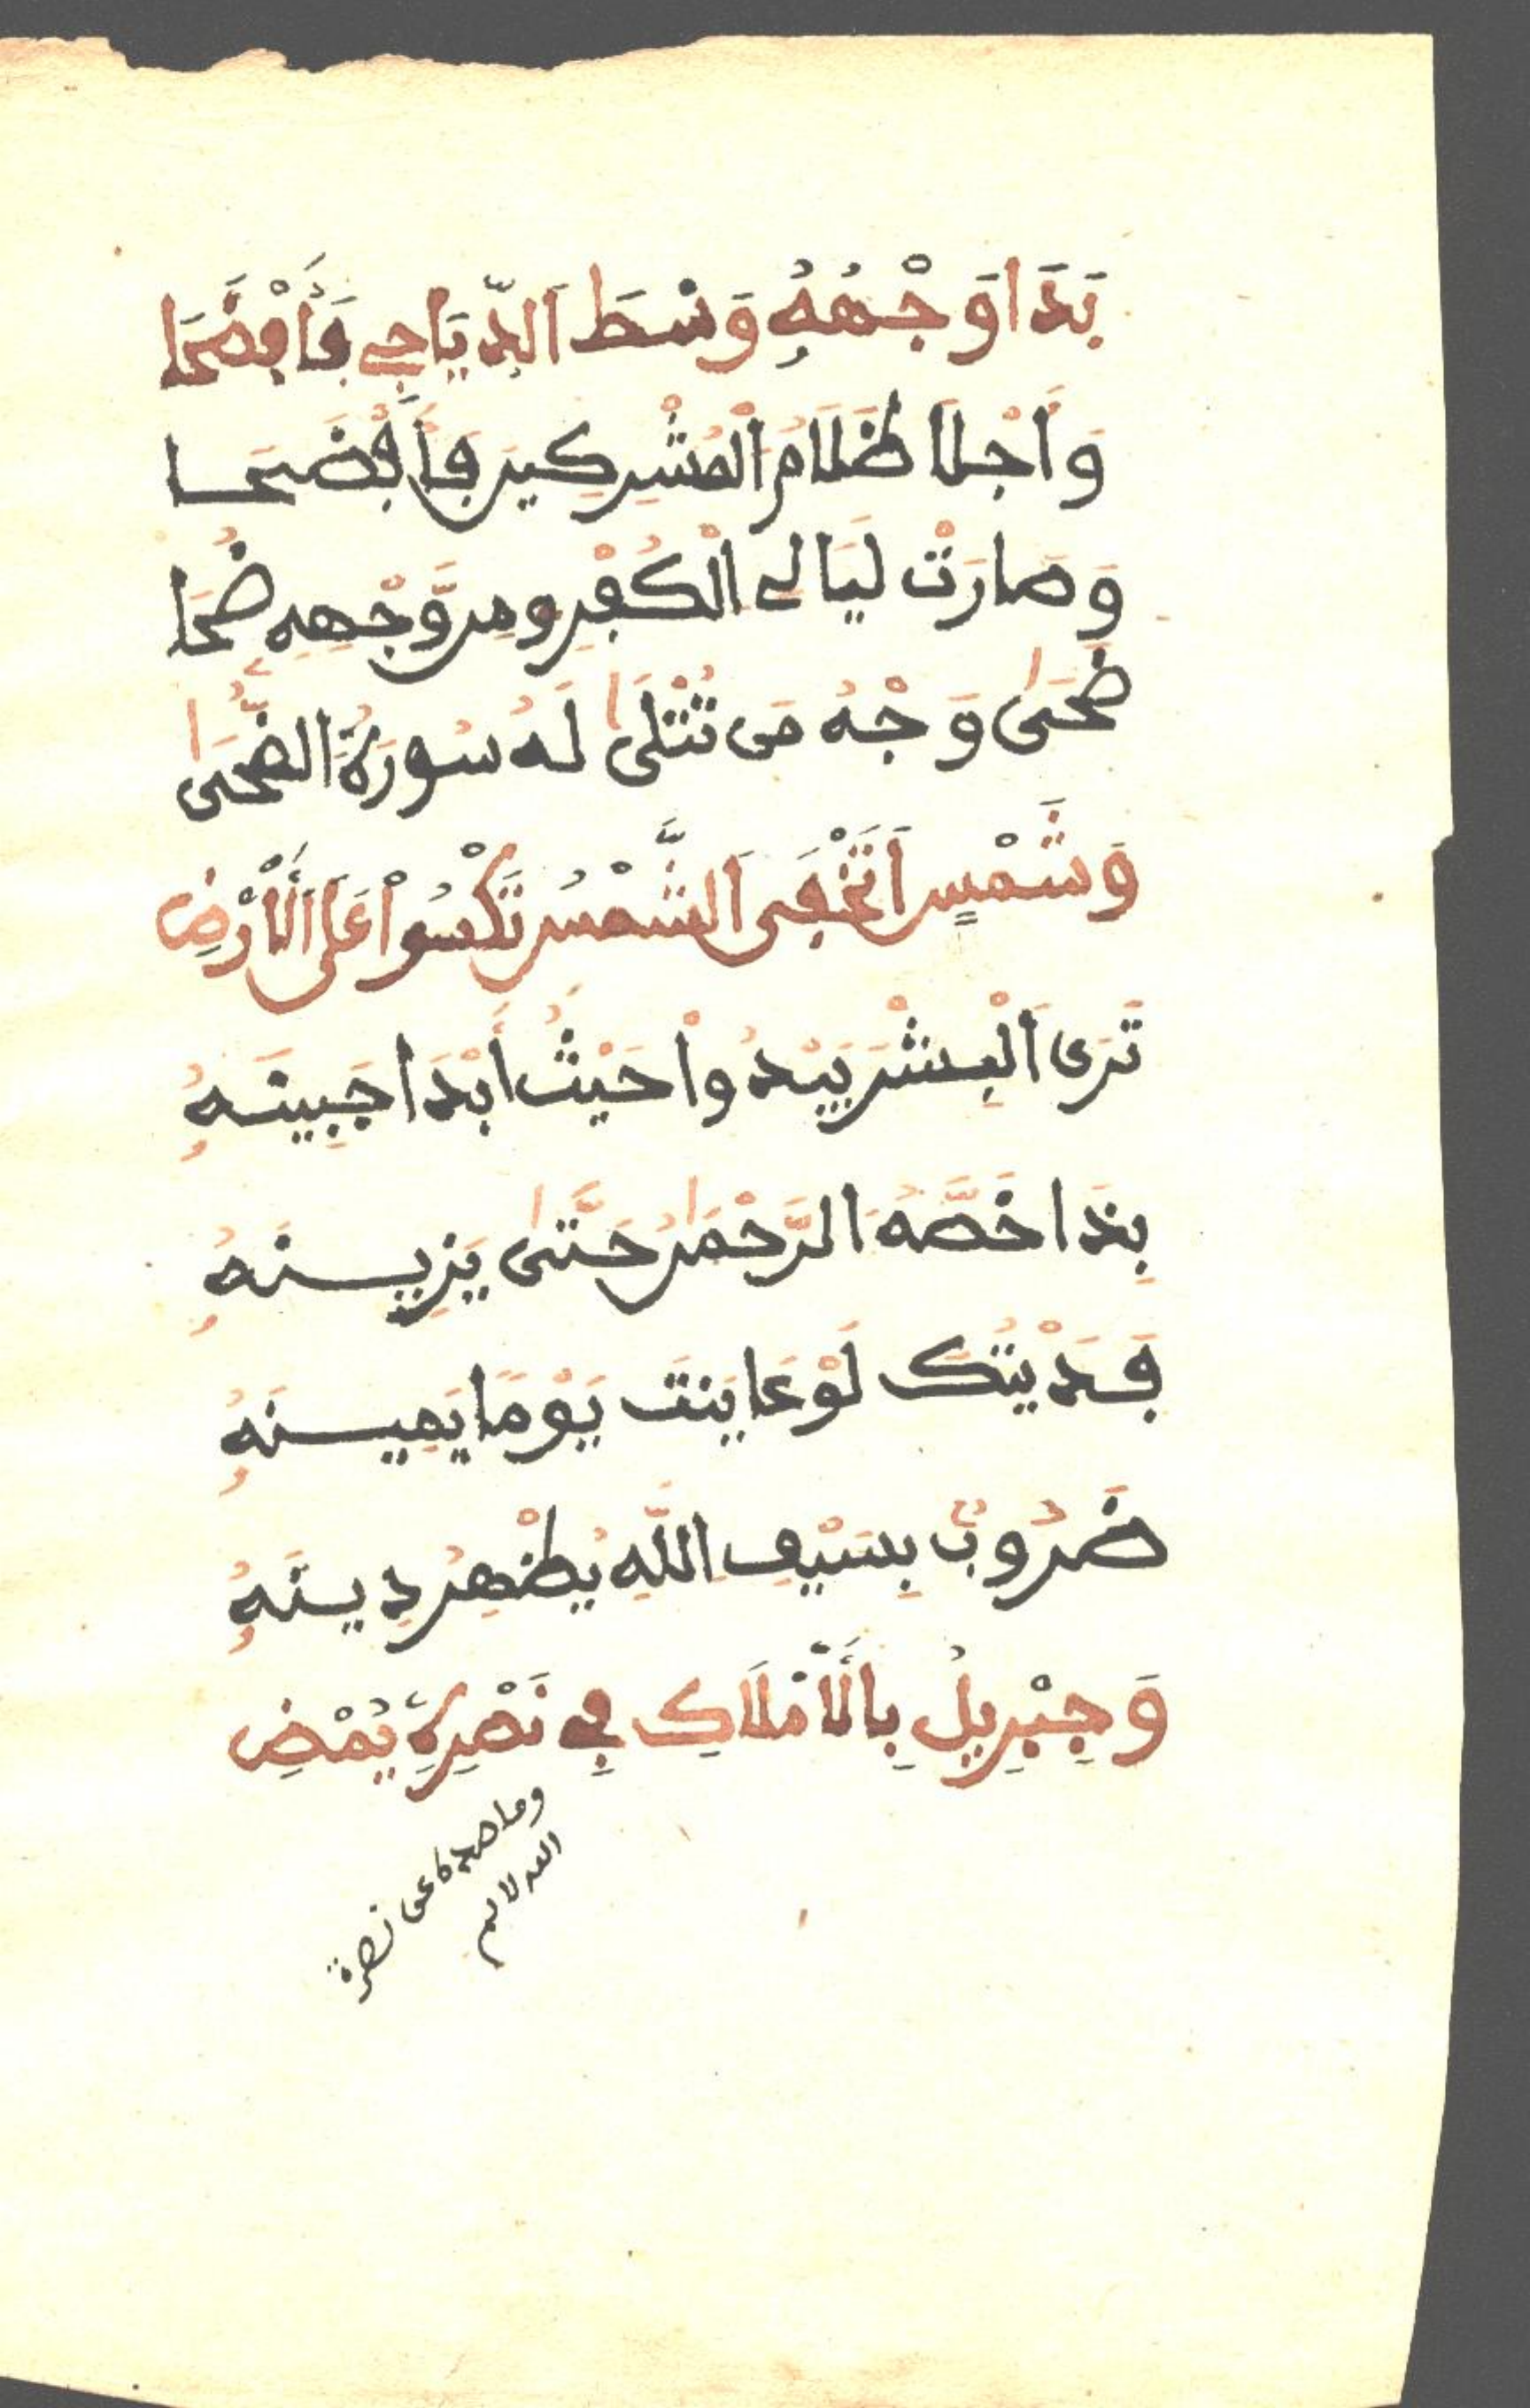 بَدَا وَجْهُهُ وَسْطَ اَلدَّيَاجِے فَأَفْضَحَا
وَأَجْلَا ظَلَامَ اَلْمُشْرِكِينَ فَأَفْضَحَا
وَصَارَتْ لَيَالِے اَلْكُفْرِ مِن وَّجْهِهِ ضُحَا
ضُحَىٰ وَجْهُ مَن تُتْلَىٰ لَهُ سُورَةُ الضُّحَىٰ
وَشَمْسٍ اَتَخْفَى اَلشَّمْسُ تَكْسُواْ عَلَى اَلْأَرْضِ
تَرَى اَلْبِشْرَ يَبْدُواْ حَيْثُ أَبْدَا جَبِينَهُ
بِذَا خَصَّهُ اَلرَّحْمَٰنُ حَتَّىٰ يَزِينَهُ
فَدَيْتُكَ لَوْ عَايَنتَ يَوْمًا يَمِينَهُ
ضَرُوبٌ بِسَيْفِ اللَّهِ يُظْهِرُ دِينَهُ
وَجِبْرِيلُ بِالْأَمْلَاكِ فِے نَصْرِهِ يُمْضِ
وما صده عن نصرة